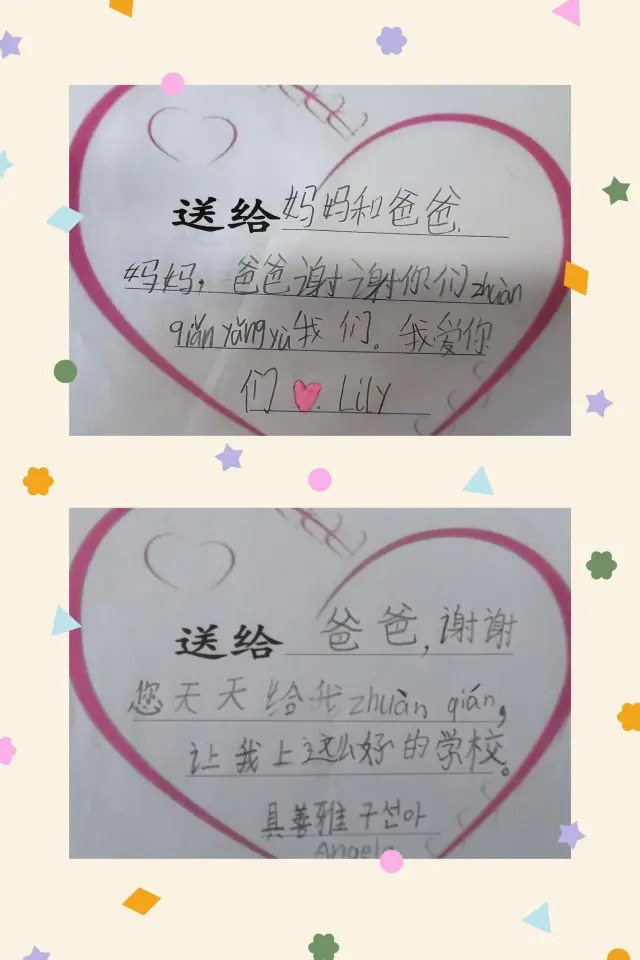 送给妈妈和爸爸.
妈妈，爸爸谢谢你们zhuàn
qián yǎng yù我们。我爱你
们 Lily
送给 爸爸,谢谢
您天天给我zhuàn qián,
让我上这么好的学校。
具善雅 구선아
Angela